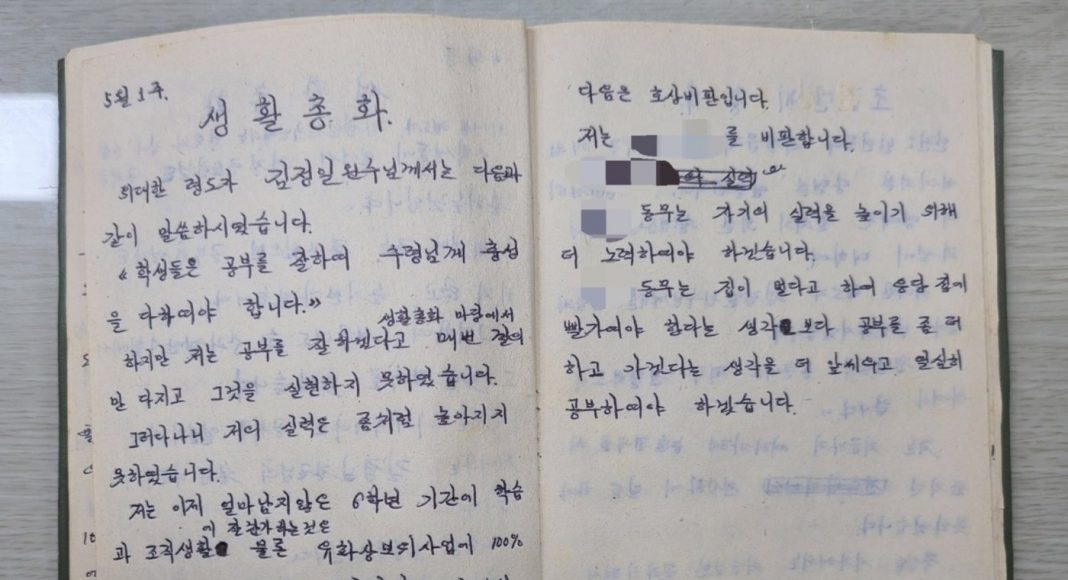 5월 1주.
생활총화.
위대한 령도자 김정일원수님께서는 다음과
같이 말씀하시였습니다.
《학생들은 공부를 잘하여 수령님께 충성
을 다하여야 합니다.》
생활총화 마당에서
하지만 저는 공부를 잘하겠다고 매번 결의
만 다지고 그것을 실현하지 못하였습니다.
그러다나니 저의 실력은 좀처럼 높아지지
못하였습니다.
저는 이제 얼마남지않은 6학년 기간이 학습
이 잘 되는것은
과 조직생활 물론 유화상보위사업에 100%
다음은 호상비판입니다.
저는 를 비판합니다.
실력
동무는 자기의 실력을 높이기 위해
더 노력하여야 하겠습니다.
동무는 집이 멀다고 하여 응당 집에
빨가여야 한다는 생각보다 공부를 좀 더
하고 가겠다는 생각을 더 앞세우고 열심히
공부하여야 하겠습니다.